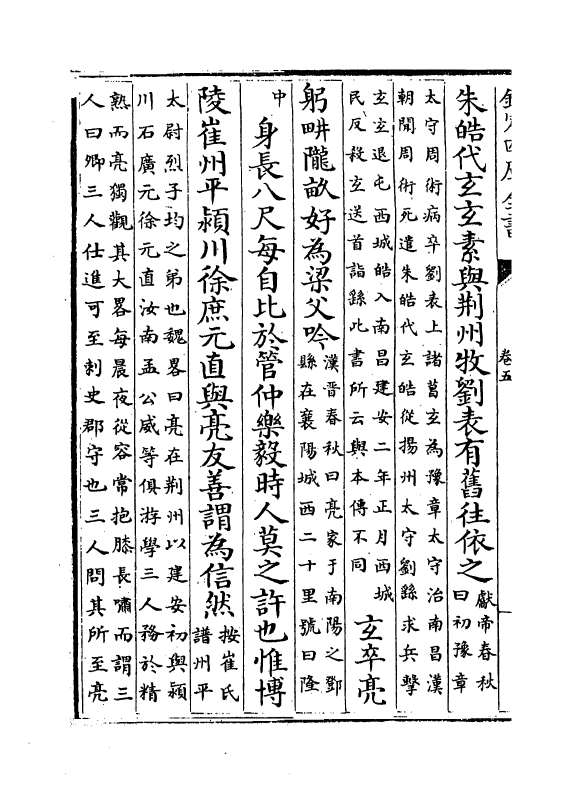 欽定四庫全書
卷五
朱皓代玄玄素與荆州牧劉表有舊往依之
獻帝春秋
曰初豫章
太守周術病卒劉表上諸葛玄為豫章太守治南昌漢
朝聞周術死遣朱皓代玄皓從揚州太守劉繇求兵擊
玄玄退屯西城皓入南昌建安二年正月西城
民反殺玄送首詣繇此書所云與本傳不同
玄卒亮
躬畊隴畝好為梁父吟
漢晉春秋曰亮家于南陽之鄧
縣在襄陽城西二十里號曰隆
中
身長八尺每自比於管仲樂毅時人莫之許也惟博
陵崔州平潁川徐庶元直與亮友善謂為信然
按崔氏
譜州平
太尉烈子均之弟也魏畧曰亮在荆州以建安初與潁
川石廣元徐元直汝南孟公威等俱游學三人務於精
熟而亮獨觀其大畧每晨夜從容常抱膝長嘯而謂三
人曰卿三人仕進可至刺史郡守也三人問其所至亮